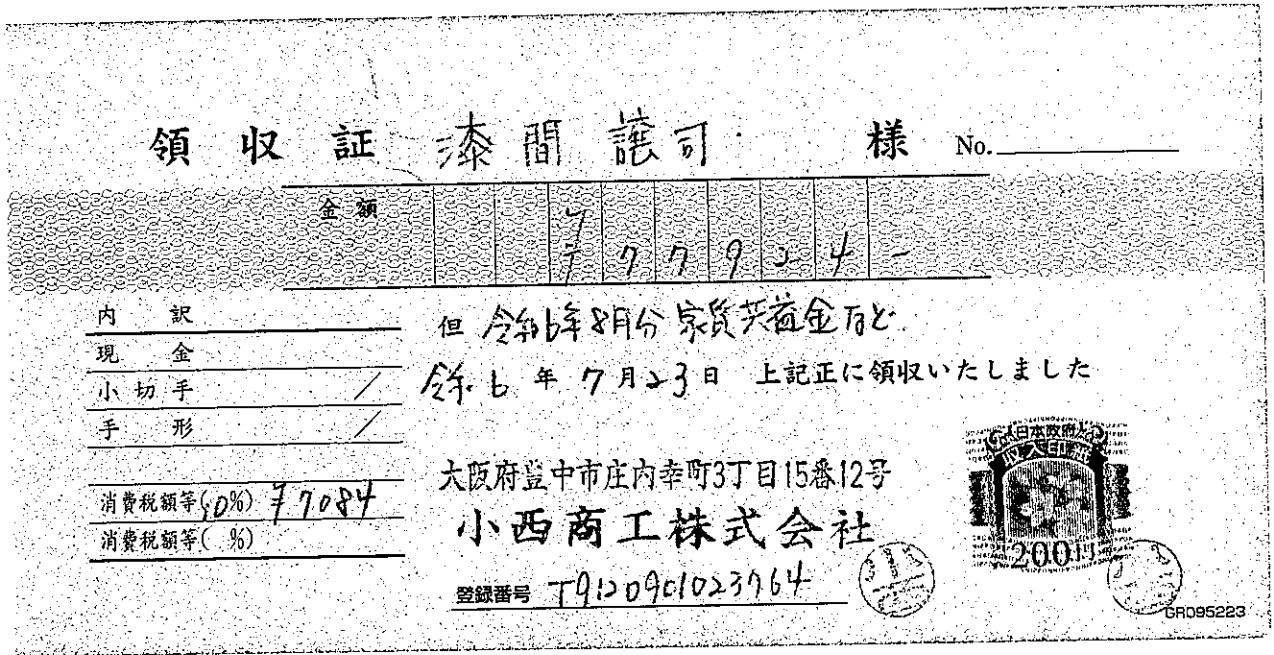 領収証 漆間 譲司 様 No.
金額 ¥77924-
但 令和6年8月分 家賃共益金など
令和 6 年 7月23日 上記正に領収いたしました
内訳
現金
小切手 /
手形 /
消費税額等(10%) ¥7084
消費税額等( %)
大阪府豊中市庄内幸町3丁目15番12号
小西商工株式会社
登録番号 T9120901023764
日本政府
収入印紙
200円
GR095223